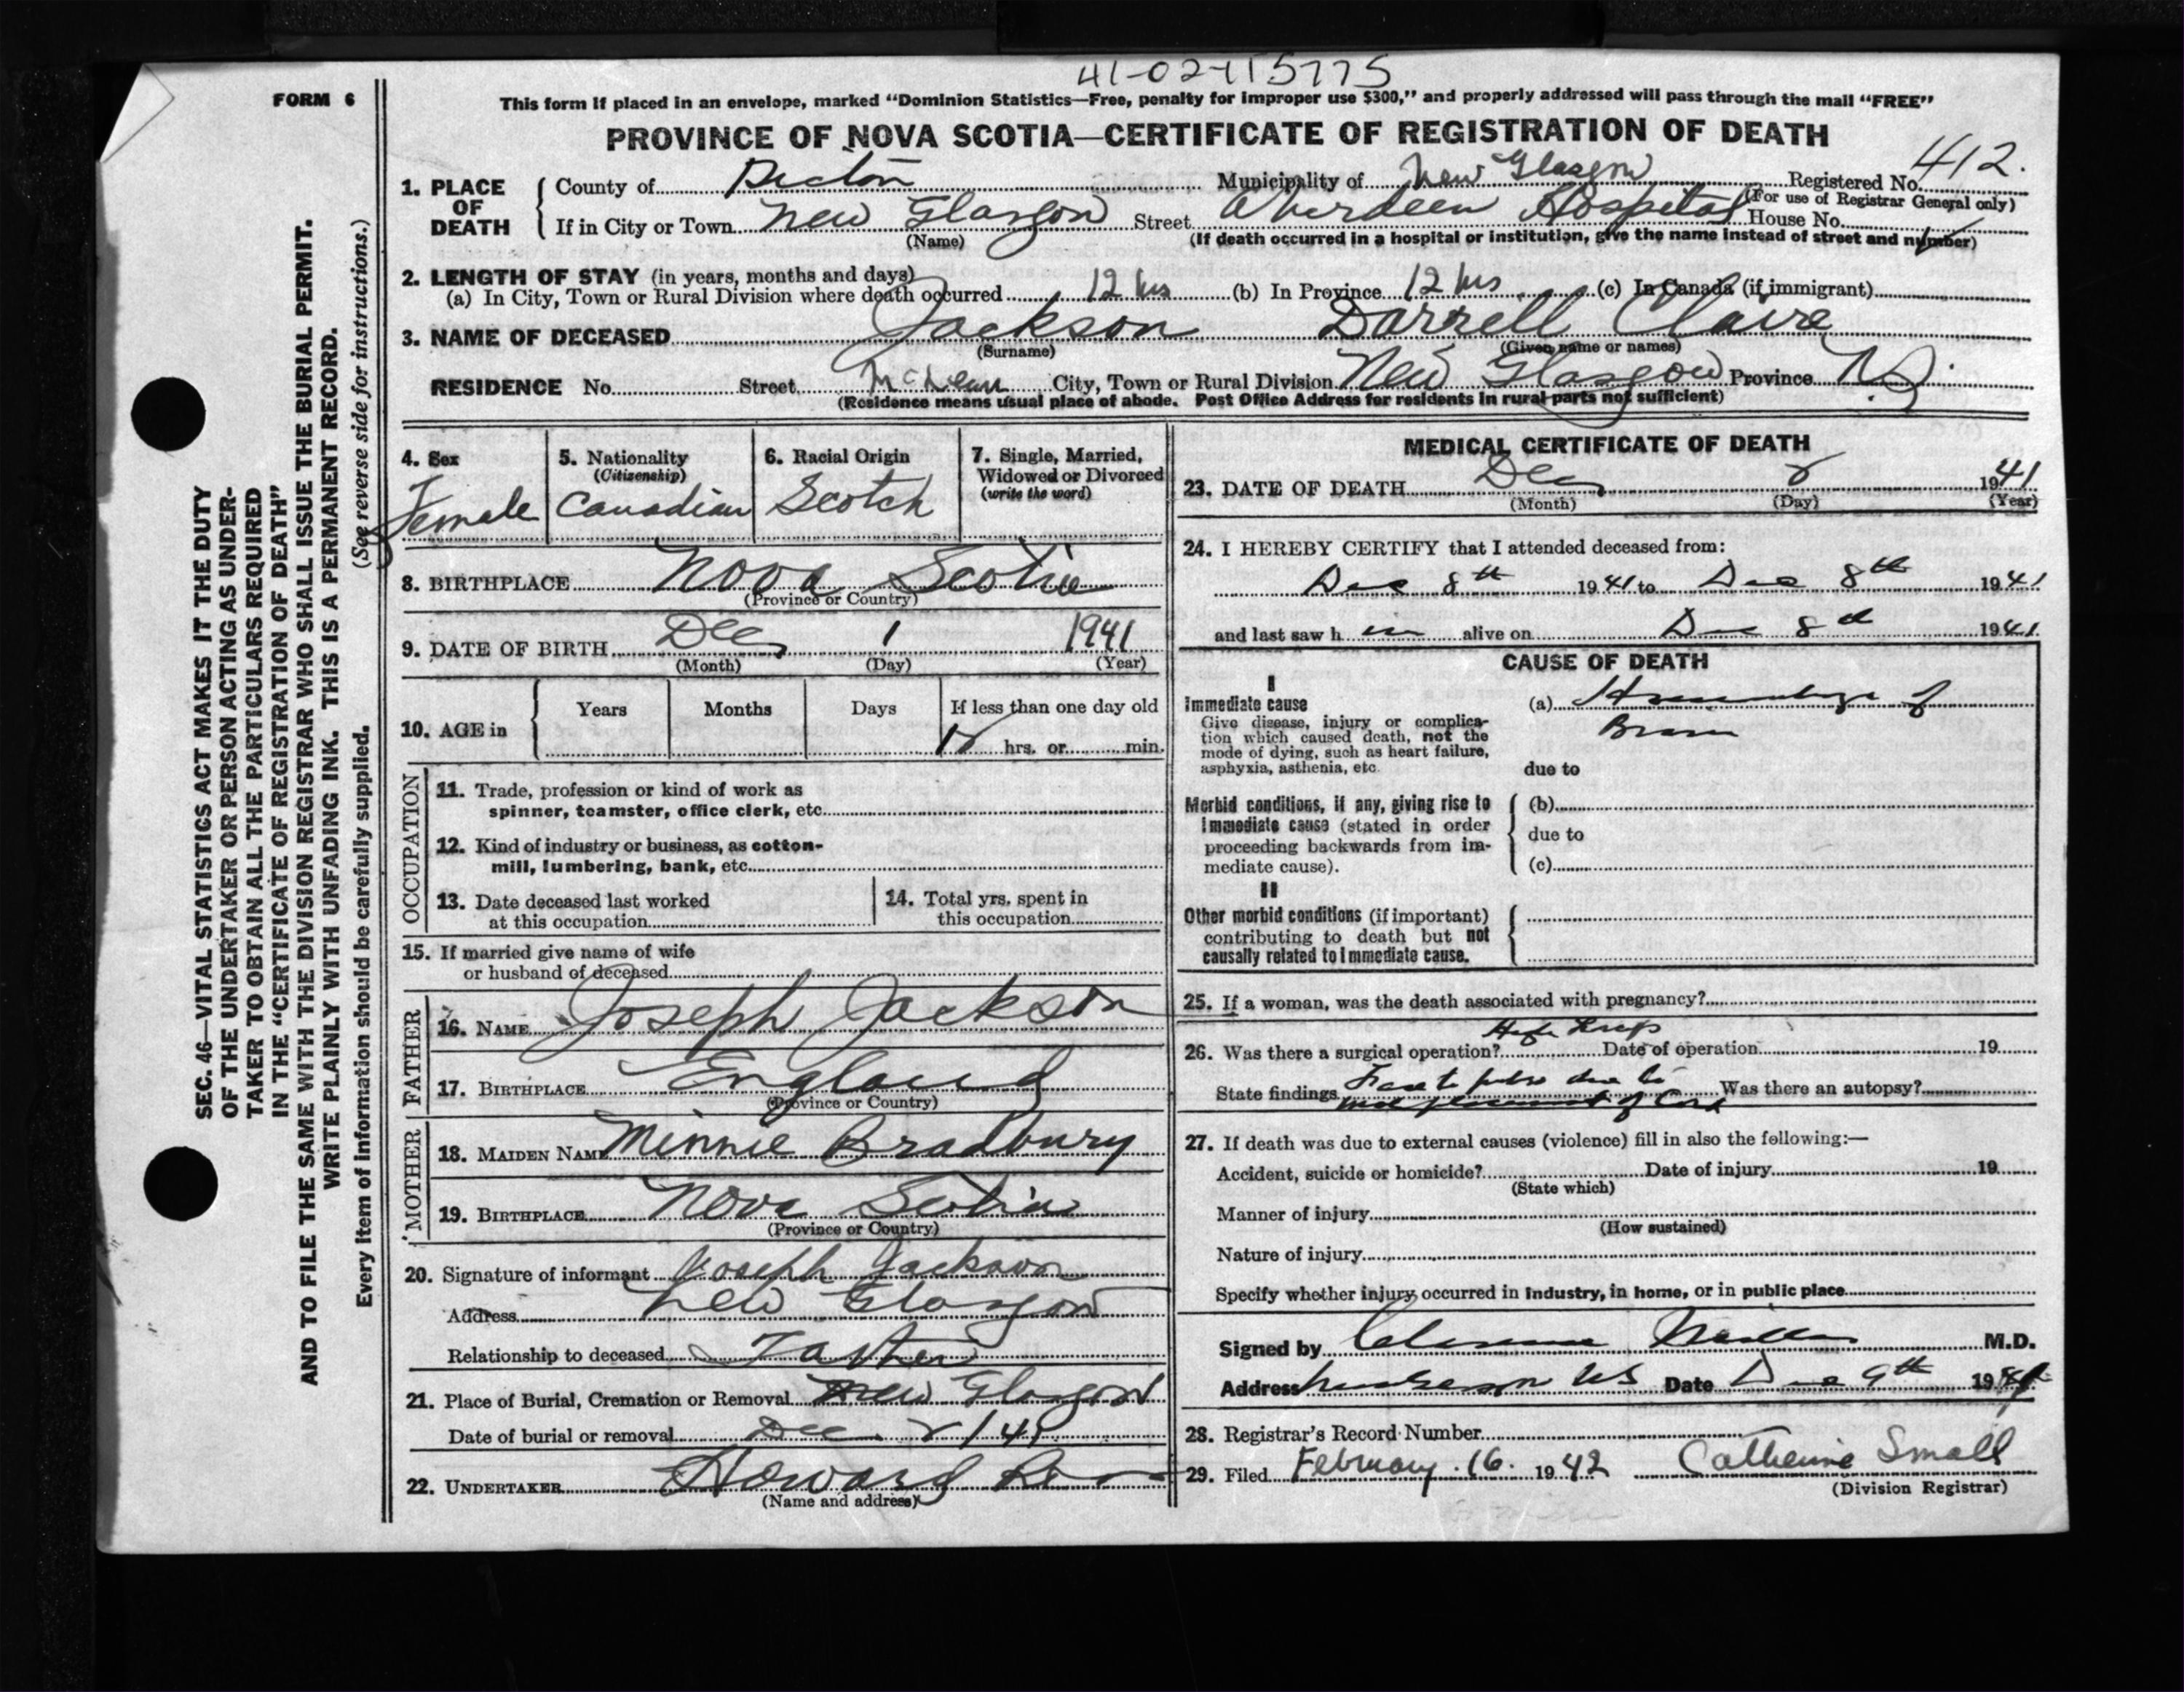 41-02-15775
FORM 6
This form if placed in an envelope, marked “Dominion Statistics—Free, penalty for improper use $300,” and properly addressed will pass through the mail “FREE”
PROVINCE OF NOVA SCOTIA—CERTIFICATE OF REGISTRATION OF DEATH
SEC. 46—VITAL STATISTICS ACT MAKES IT THE DUTY
OF THE UNDERTAKER OR PERSON ACTING AS UNDER-
TAKER TO OBTAIN ALL THE PARTICULARS REQUIRED
IN THE “CERTIFICATE OF REGISTRATION OF DEATH”
AND TO FILE THE SAME WITH THE DIVISION REGISTRAR WHO SHALL ISSUE THE BURIAL PERMIT.
WRITE PLAINLY WITH UNFADING INK. THIS IS A PERMANENT RECORD.
Every item of information should be carefully supplied. (See reverse side for instructions.)
1. PLACE OF DEATH
County of Pictou Municipality of New Glasgow Registered No. 412.
(For use of Registrar General only)
If in City or Town New Glasgow Street Aberdeen Hospital House No.
(Name) (If death occurred in a hospital or institution, give the name instead of street and number)
2. LENGTH OF STAY (in years, months and days)
(a) In City, Town or Rural Division where death occurred 12 hrs (b) In Province 12 hrs (c) In Canada (if immigrant)
3. NAME OF DECEASED Jackson Darrell Claire
(Surname) (Given name or names)
RESIDENCE No. Street McLean City, Town or Rural Division New Glasgow Province N.S.
(Residence means usual place of abode. Post Office Address for residents in rural parts not sufficient)
4. Sex
Female
5. Nationality
(Citizenship)
Canadian
6. Racial Origin
Scotch
7. Single, Married,
Widowed or Divorced
(write the word)
8. BIRTHPLACE Nova Scotia
(Province or Country)
9. DATE OF BIRTH Dec 1 1941
(Month) (Day) (Year)
10. AGE in
Years Months Days If less than one day old
12 hrs. or min.
OCCUPATION
11. Trade, profession or kind of work as
spinner, teamster, office clerk, etc.
12. Kind of industry or business, as cotton-
mill, lumbering, bank, etc.
13. Date deceased last worked
at this occupation
14. Total yrs. spent in
this occupation
15. If married give name of wife
or husband of deceased
FATHER
16. NAME Joseph Jackson
17. BIRTHPLACE England
(Province or Country)
MOTHER
18. MAIDEN NAME Minnie Bradbury
19. BIRTHPLACE Nova Scotia
(Province or Country)
20. Signature of informant Joseph Jackson
Address New Glasgow
Relationship to deceased Father
21. Place of Burial, Cremation or Removal New Glasgow
Date of burial or removal Dec 2/41
22. UNDERTAKER Howard
(Name and address)
MEDICAL CERTIFICATE OF DEATH
23. DATE OF DEATH Dec 2 1941
(Month) (Day) (Year)
24. I HEREBY CERTIFY that I attended deceased from:
Dec 8th 1941 to Dec 8th 1941
and last saw h im alive on Dec 8th 1941
CAUSE OF DEATH
I
Immediate cause
Give disease, injury or complica-
tion which caused death, not the
mode of dying, such as heart failure,
asphyxia, asthenia, etc.
(a) Hemorrhage of
Brain
due to
Morbid conditions, if any, giving rise to
immediate cause (stated in order
proceeding backwards from im-
mediate cause).
(b)
due to
(c)
II
Other morbid conditions (if important)
contributing to death but not
causally related to immediate cause.
25. If a woman, was the death associated with pregnancy?
26. Was there a surgical operation? High Date of operation 19
State findings Face to pubis due to Was there an autopsy?
of Cord
27. If death was due to external causes (violence) fill in also the following:—
Accident, suicide or homicide? Date of injury 19
(State which)
Manner of injury
(How sustained)
Nature of injury
Specify whether injury occurred in industry, in home, or in public place
Signed by Clarence Miller M.D.
Address New Glasgow NS Date Dec 9th 1941
28. Registrar’s Record Number
29. Filed February 16. 1942 Catherine Small
(Division Registrar)